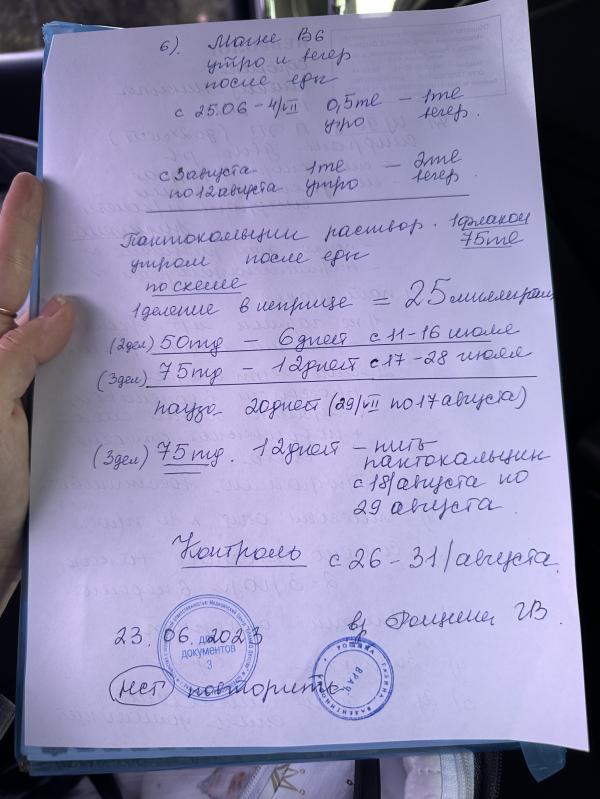 6). Магне В6
утро и вечер
после еды
с 25.06 - 4/VII 0,5те - 1те
утро вечер.
с 3 августа 1те - 2те
по 12 августа утро вечер.
Пантокальцин раствор. 1 флакон
75те
утром после еды
по схеме
1 деление в шприце = 25 миллиграм
(2 дел) 50mg - 6 дней с 11-16 июля
(3 дел) 75mg - 12 дней с 17-28 июля
пауза 20 дней (29/VII по 17 августа)
(3 дел) 75mg. 12 дней - пить
пантокальцин
с 18/августа по
29 августа.
Контроль с 26-31/августа.
23.06.2023 вр Рощина ГВ.
для
документов
3
РОЩИНА ГАЛИНА ВАЛЕНТИНОВНА
ВРАЧ
ЭЭГ повторить